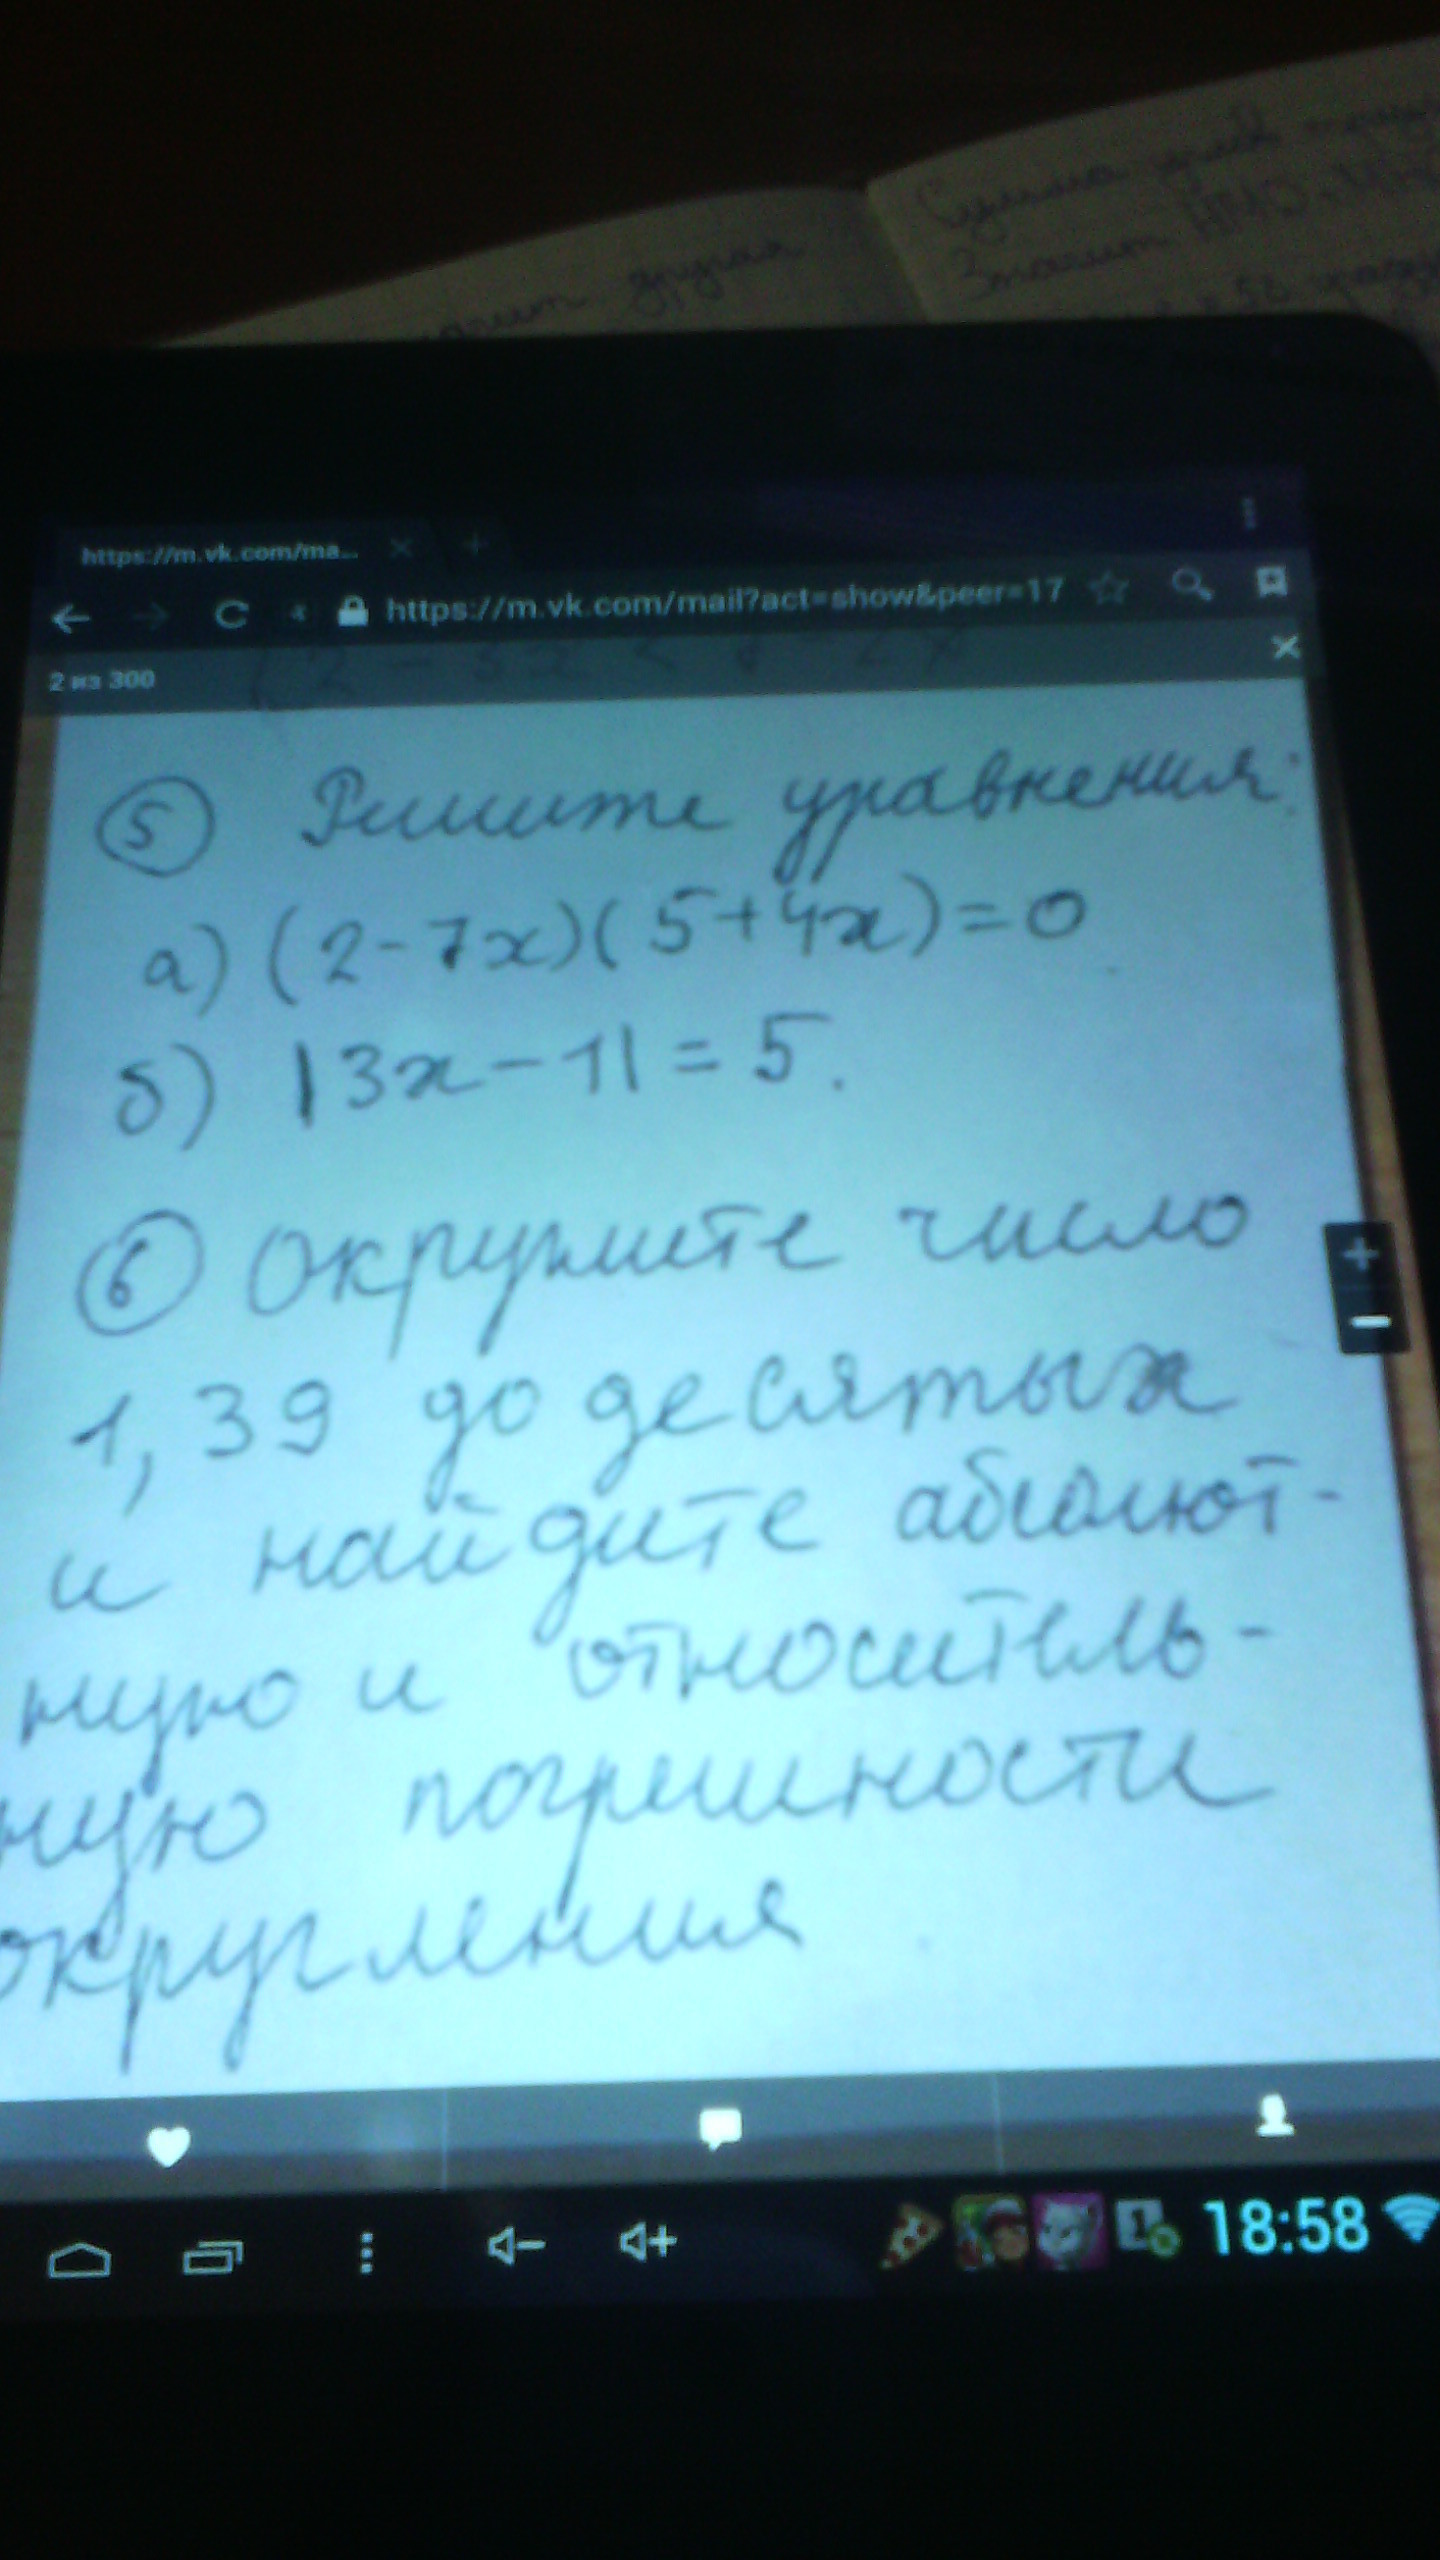 Сумма углов
Значит
другая
https://m.vk.com/ma...
https://m.vk.com/mail?act=show&peer=17
2 из 300
5 Решите уравнения:
а) (2-7x)(5+4x)=0
б) |3x-1|=5.
6 Округлите число
1,39 до десятых
и найдите абсолют-
ную и относитель-
ную погрешности
округления
18:58